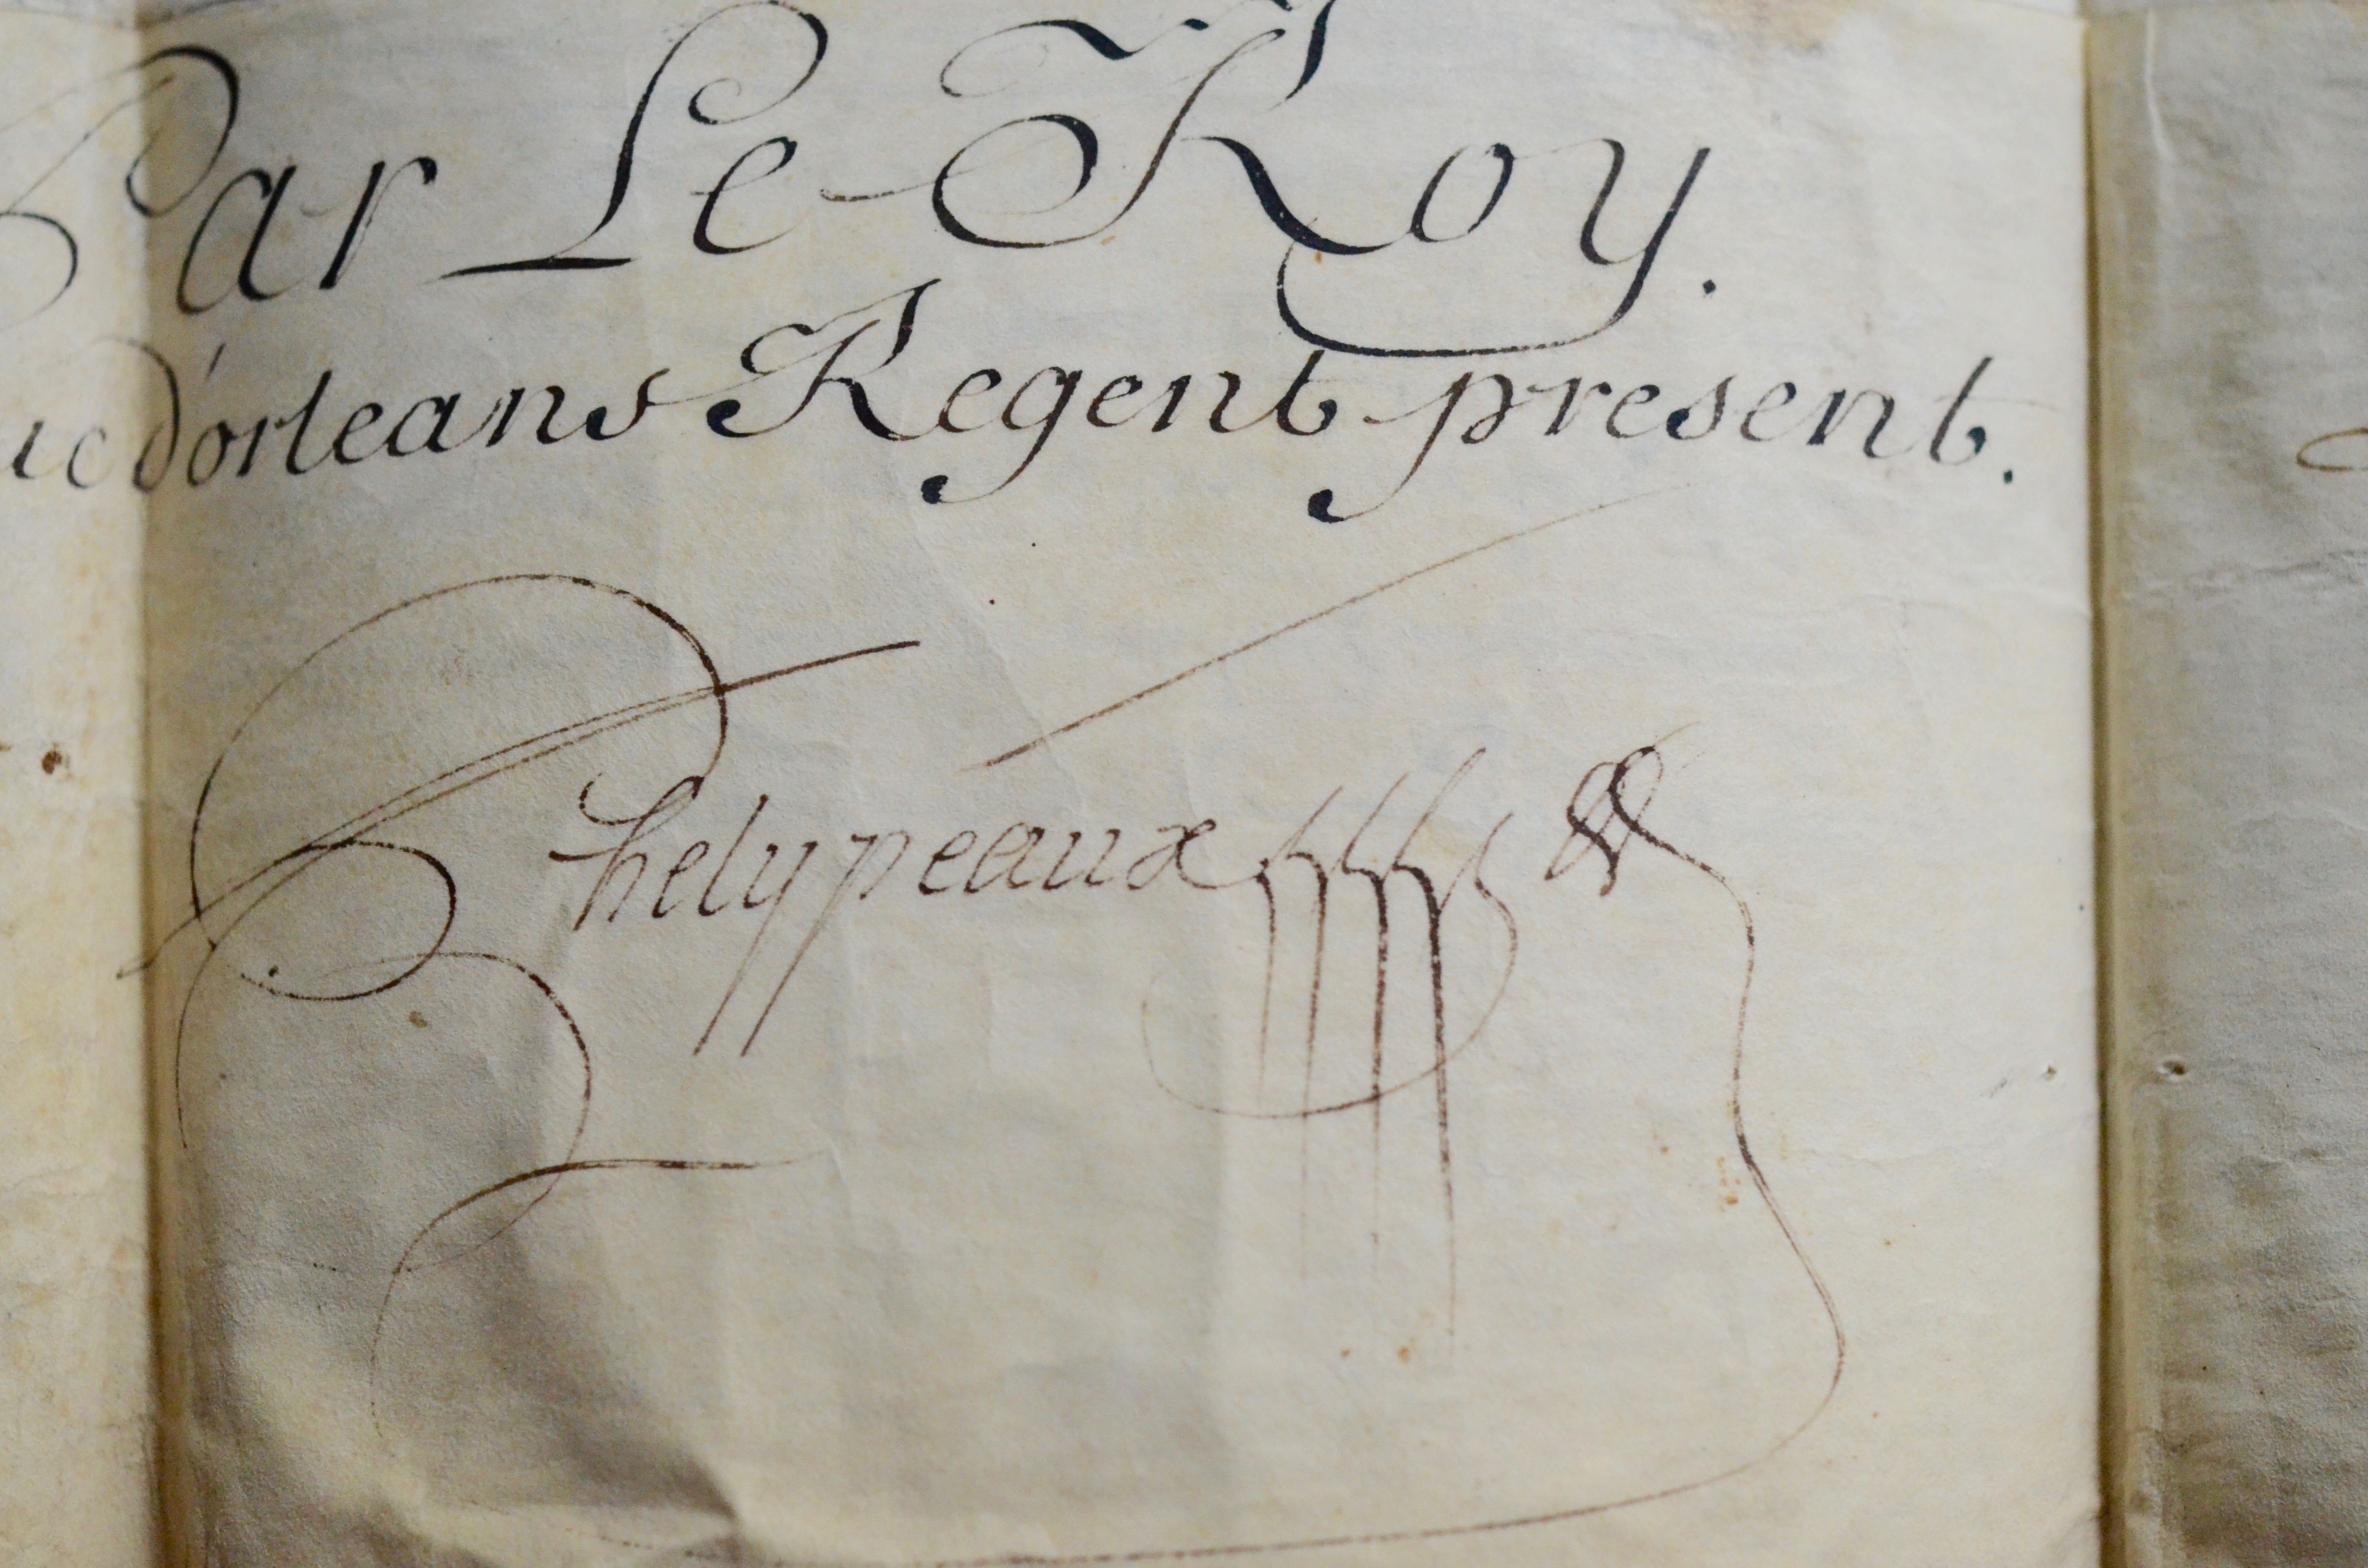 Par Le Roy.
uc d'orleans Regent present.
Phelypeaux